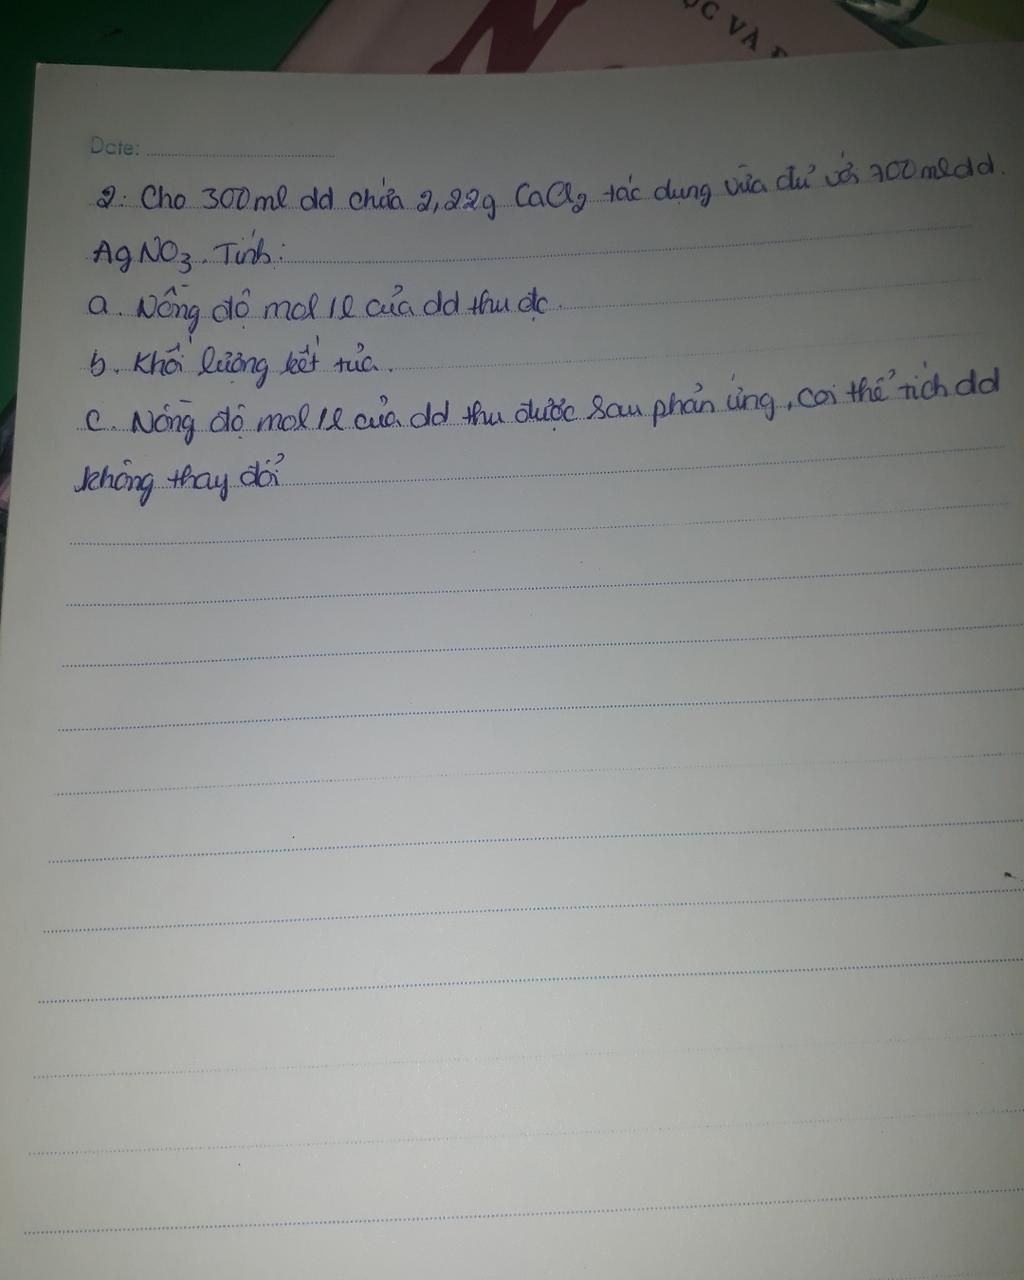 ỌC VÀ
Date:
2: Cho 300ml dd chứa 2,22g CaCl2 tác dụng vừa đủ với 700ml dd
AgNO3. Tính:
a. Nồng độ mol/l của dd thu đc
b. Khối lượng kết tủa.
c. Nồng độ mol/l của dd thu được sau phản ứng, coi thể tích dd
không thay đổi